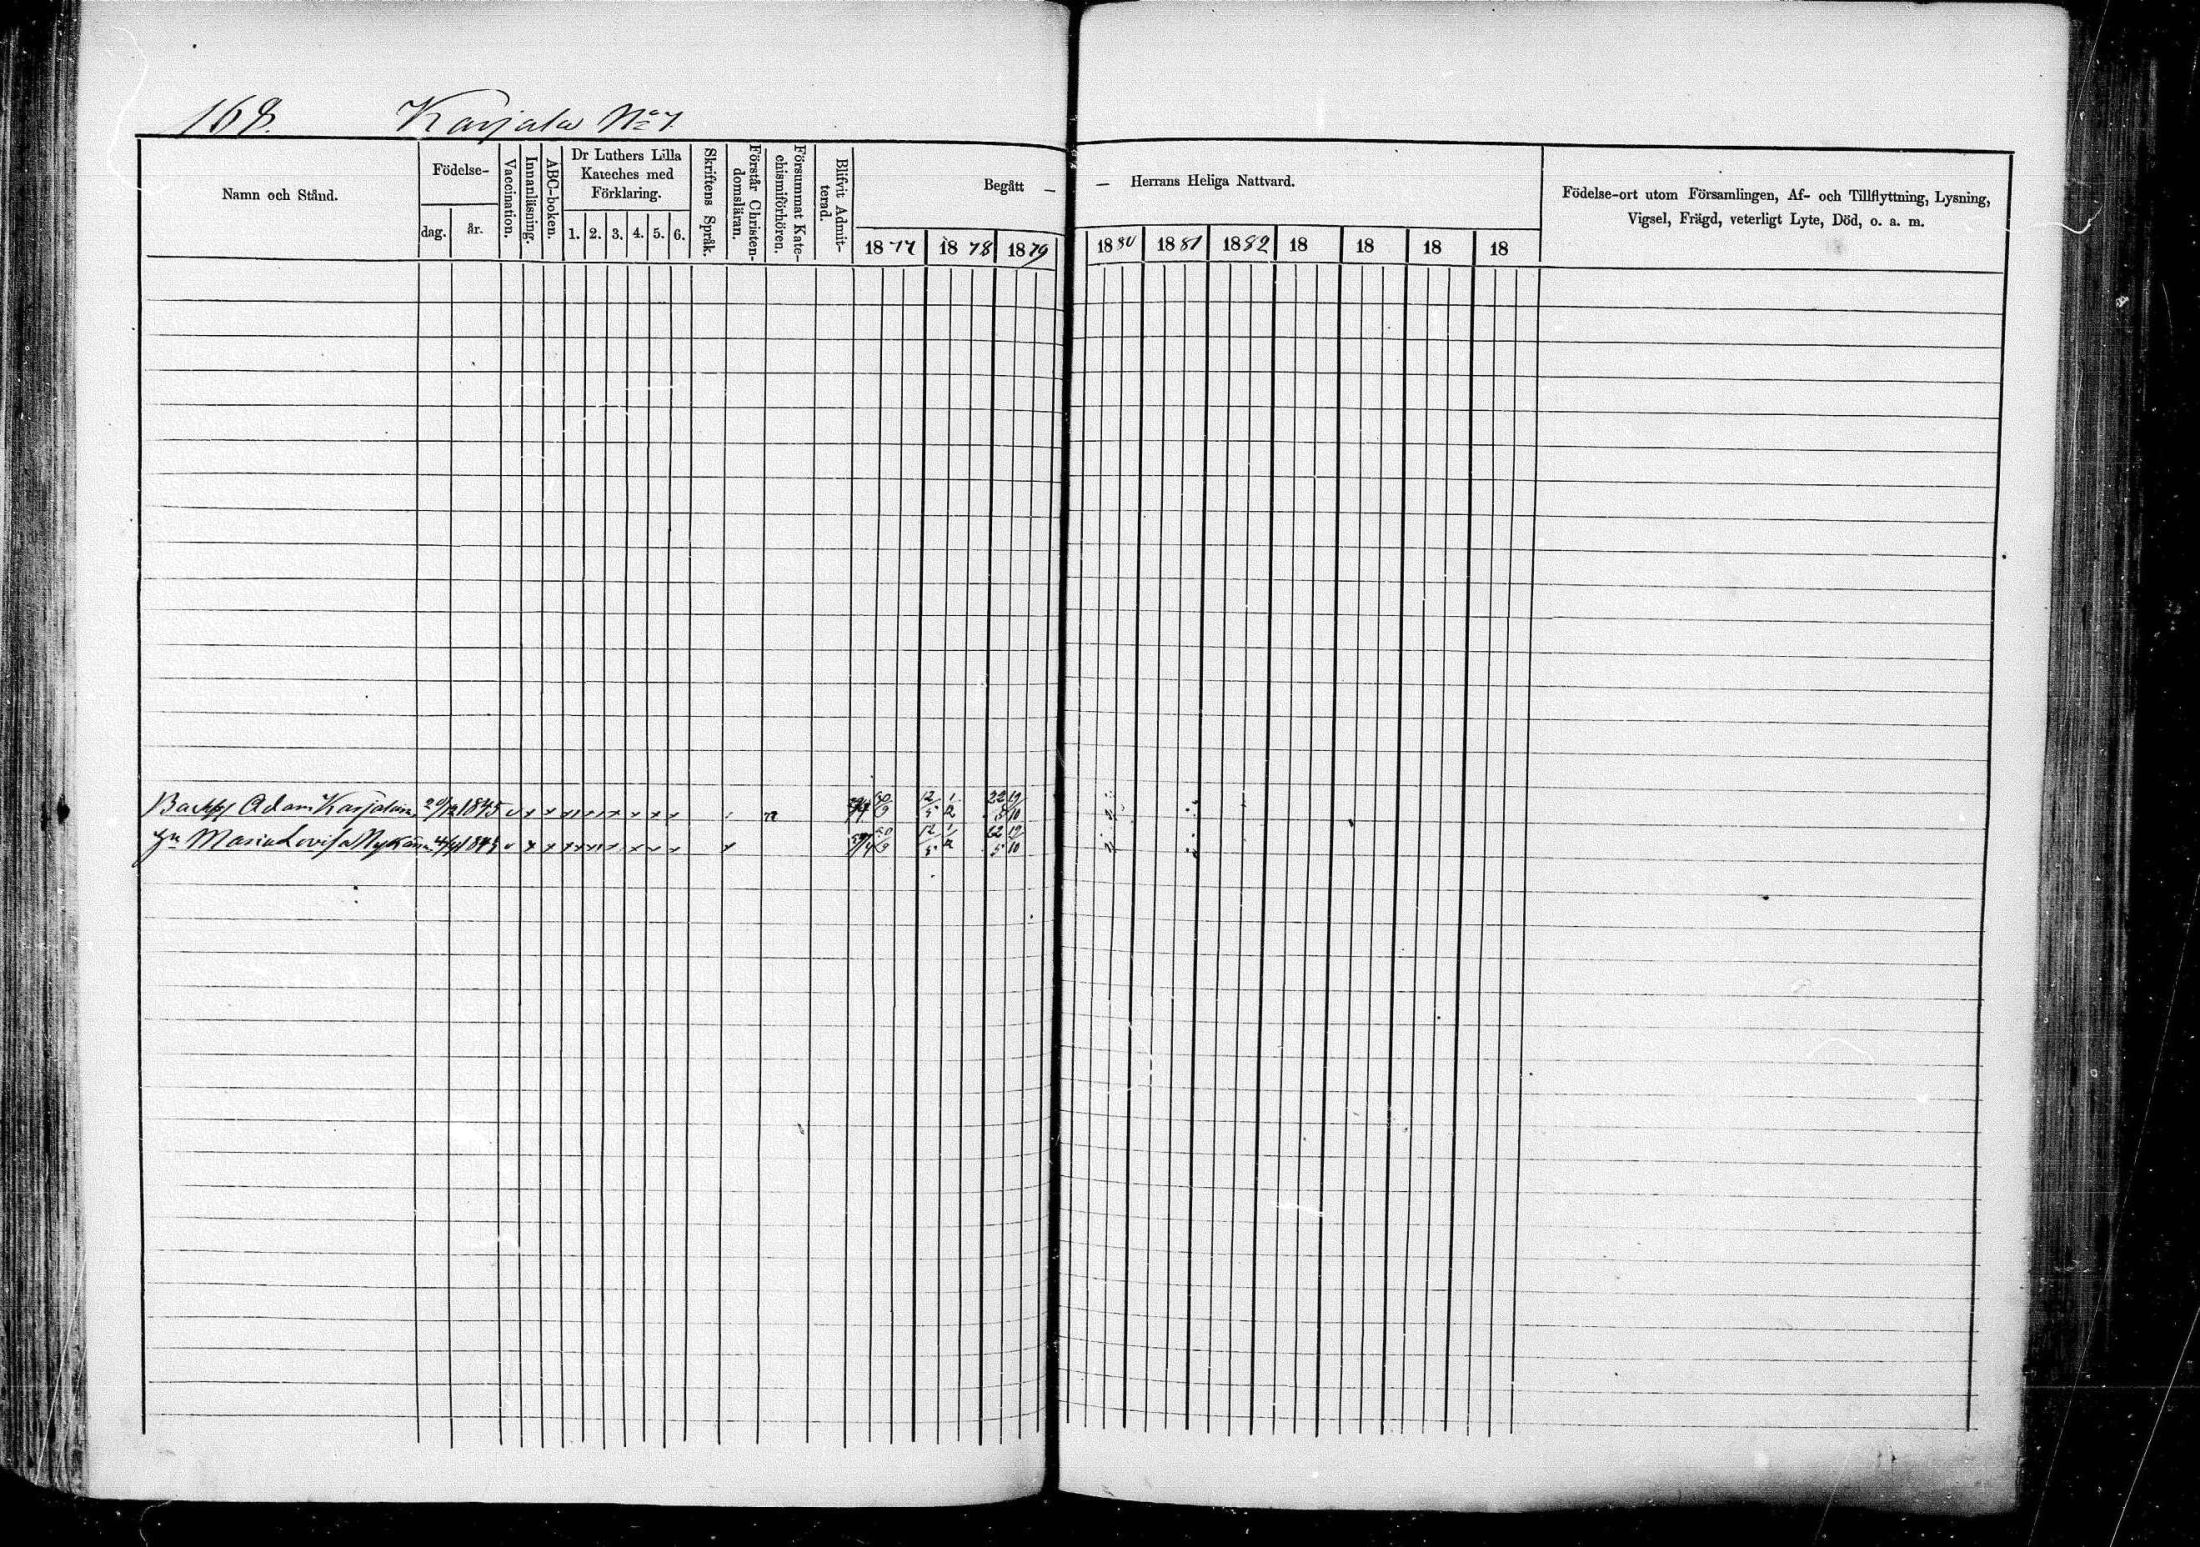 168. Karjala No 7.
Namn och Stånd.
Födelse-
dag.
år.
Vaccination.
Innanläsning.
ABC-boken.
Dr Luthers Lilla
Kateches med
Förklaring.
1. 2. 3. 4. 5. 6.
Skriftens Språk.
Förstår Christen-
domsläran.
Försummat Kate-
chismiförhören.
Blifvit Admit-
terad.
Begått —
1877 1878 1879
— Herrans Heliga Nattvard.
1880 1881 1882 18 18 18 18
Födelse-ort utom Församlingen, Af- och Tillflyttning, Lysning,
Vigsel, Frägd, veterligt Lyte, Död, o. a. m.
Adam Karjalain 1845 30/9 12/5 1/12 22/5 19/10
Maria Lovisa 30/9 12/5 1/12 22/5 19/10